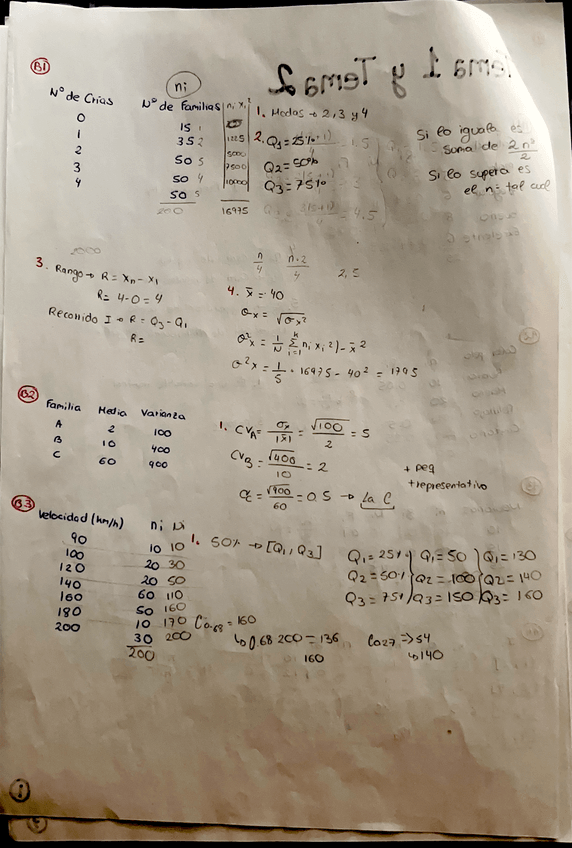 Tema 1 y Tema 2
B1
ni
Nº de Crias Nº de Familias ni xi²
0 15 1
1 35 2 1225
2 50 5 5000
3 50 4 7500
4 50 5 10000
200 16975
1. Modas → 2, 3 y 4
2. Q1 = 25%
Q2 = 50%
Q3 = 75%
Si lo iguala es
suma de 2 nº
2
Si lo supera es
el nº tal cual
n/4 n·2/4 2,5
3. Rango → R = Xn - X1
R = 4 - 0 = 4
Recorrido I → R = Q3 - Q1
R =
4. x̄ = 40
σx = √σx²
σ²x = 1/N Σ ni xi²) - x̄²
σ²x = 1/5 · 16975 - 40² = 1795
B2
Familia Media Varianza
A 2 100
B 10 400
C 60 900
1. CVA = σx/|x̄| = √100/2 = 5
CVB = √400/10 = 2
= √900/60 = 0.5 → La C
+ peq
+ representativo
B3
Velocidad (km/h) ni Ni
90 10 10
100 20 30
120 20 50
140 60 110
160 50 160
180 10 170
200 30 200
200
1. 50% → [Q1, Q3]
Q1 = 25% Q1 = 50 Q1 = 130
Q2 = 50% Q2 = 100 Q2 = 140
Q3 = 75% Q3 = 150 Q3 = 160
C0.68 = 160
↳ 0.68 200 = 136
160
C027 => 54
↳ 140
1